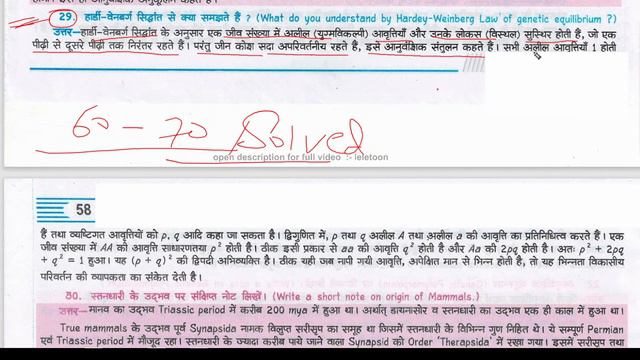 29. हार्डी-वेनबर्ग सिद्धांत से क्या समझते हैं ? (What do you understand by Hardey-Weinberg Law of genetic equilibrium ?)
उत्तर—हार्डी-वेनबर्ग सिद्धांत के अनुसार एक जीव संख्या में अलील (युग्मविकल्पी) आवृत्तियाँ और उनके लोकस (विस्थल) सुस्थिर होती हैं, जो एक
पीढ़ी से दूसरे पीढ़ी तक निरंतर रहते हैं। परंतु जीन कोश सदा अपरिवर्तनीय रहते हैं, इसे आनुवंशिक संतुलन कहते हैं। सभी अलील आवृत्तियाँ 1 होती
60 - 70 Solved
open description for full video :- leletoon
58
हैं तथा व्यष्टिगत आवृत्तियों को p, q आदि कहा जा सकता है। द्विगुणित में, p तथा q अलील A तथा अलील a की आवृत्ति का प्रतिनिधित्व करते हैं। एक
जीव संख्या में AA की आवृत्ति साधारणतया p² होती है। ठीक इसी प्रकार से aa की आवृत्ति q² होती है और Aa की 2pq होती है। अतः p² + 2pq
+ q² = 1 हुआ। यह (p + q)² की द्विपदी अभिव्यक्ति है। ठीक यही जब नापी गयी आवृत्ति, अपेक्षित मान से भिन्न होती है, तो यह भिन्नता विकासीय
परिवर्तन की व्यापकता का संकेत देती है।
30. स्तनधारी के उद्भव पर संक्षिप्त नोट लिखें। (Write a short note on origin of Mammals.)
उत्तर—मानव का उद्भव Triassic period में करीब 200 mya में हुआ था। अर्थात् डायनासोर व स्तनधारी का उद्भव एक ही काल में हुआ था।
True mammals के उद्भव पूर्व Synapsida नामक विलुप्त सरीसृप का समूह था जिसमें स्तनधारी के विभिन्न गुण निहित थे। ये सम्पूर्ण Permian
एवं Triassic period में मौजूद रहा। स्तनधारी के ज्यादा करीब पाये जाने वाला Synapsid को Order 'Therapsida' में रखा गया। इसमें सरीसृप तथा